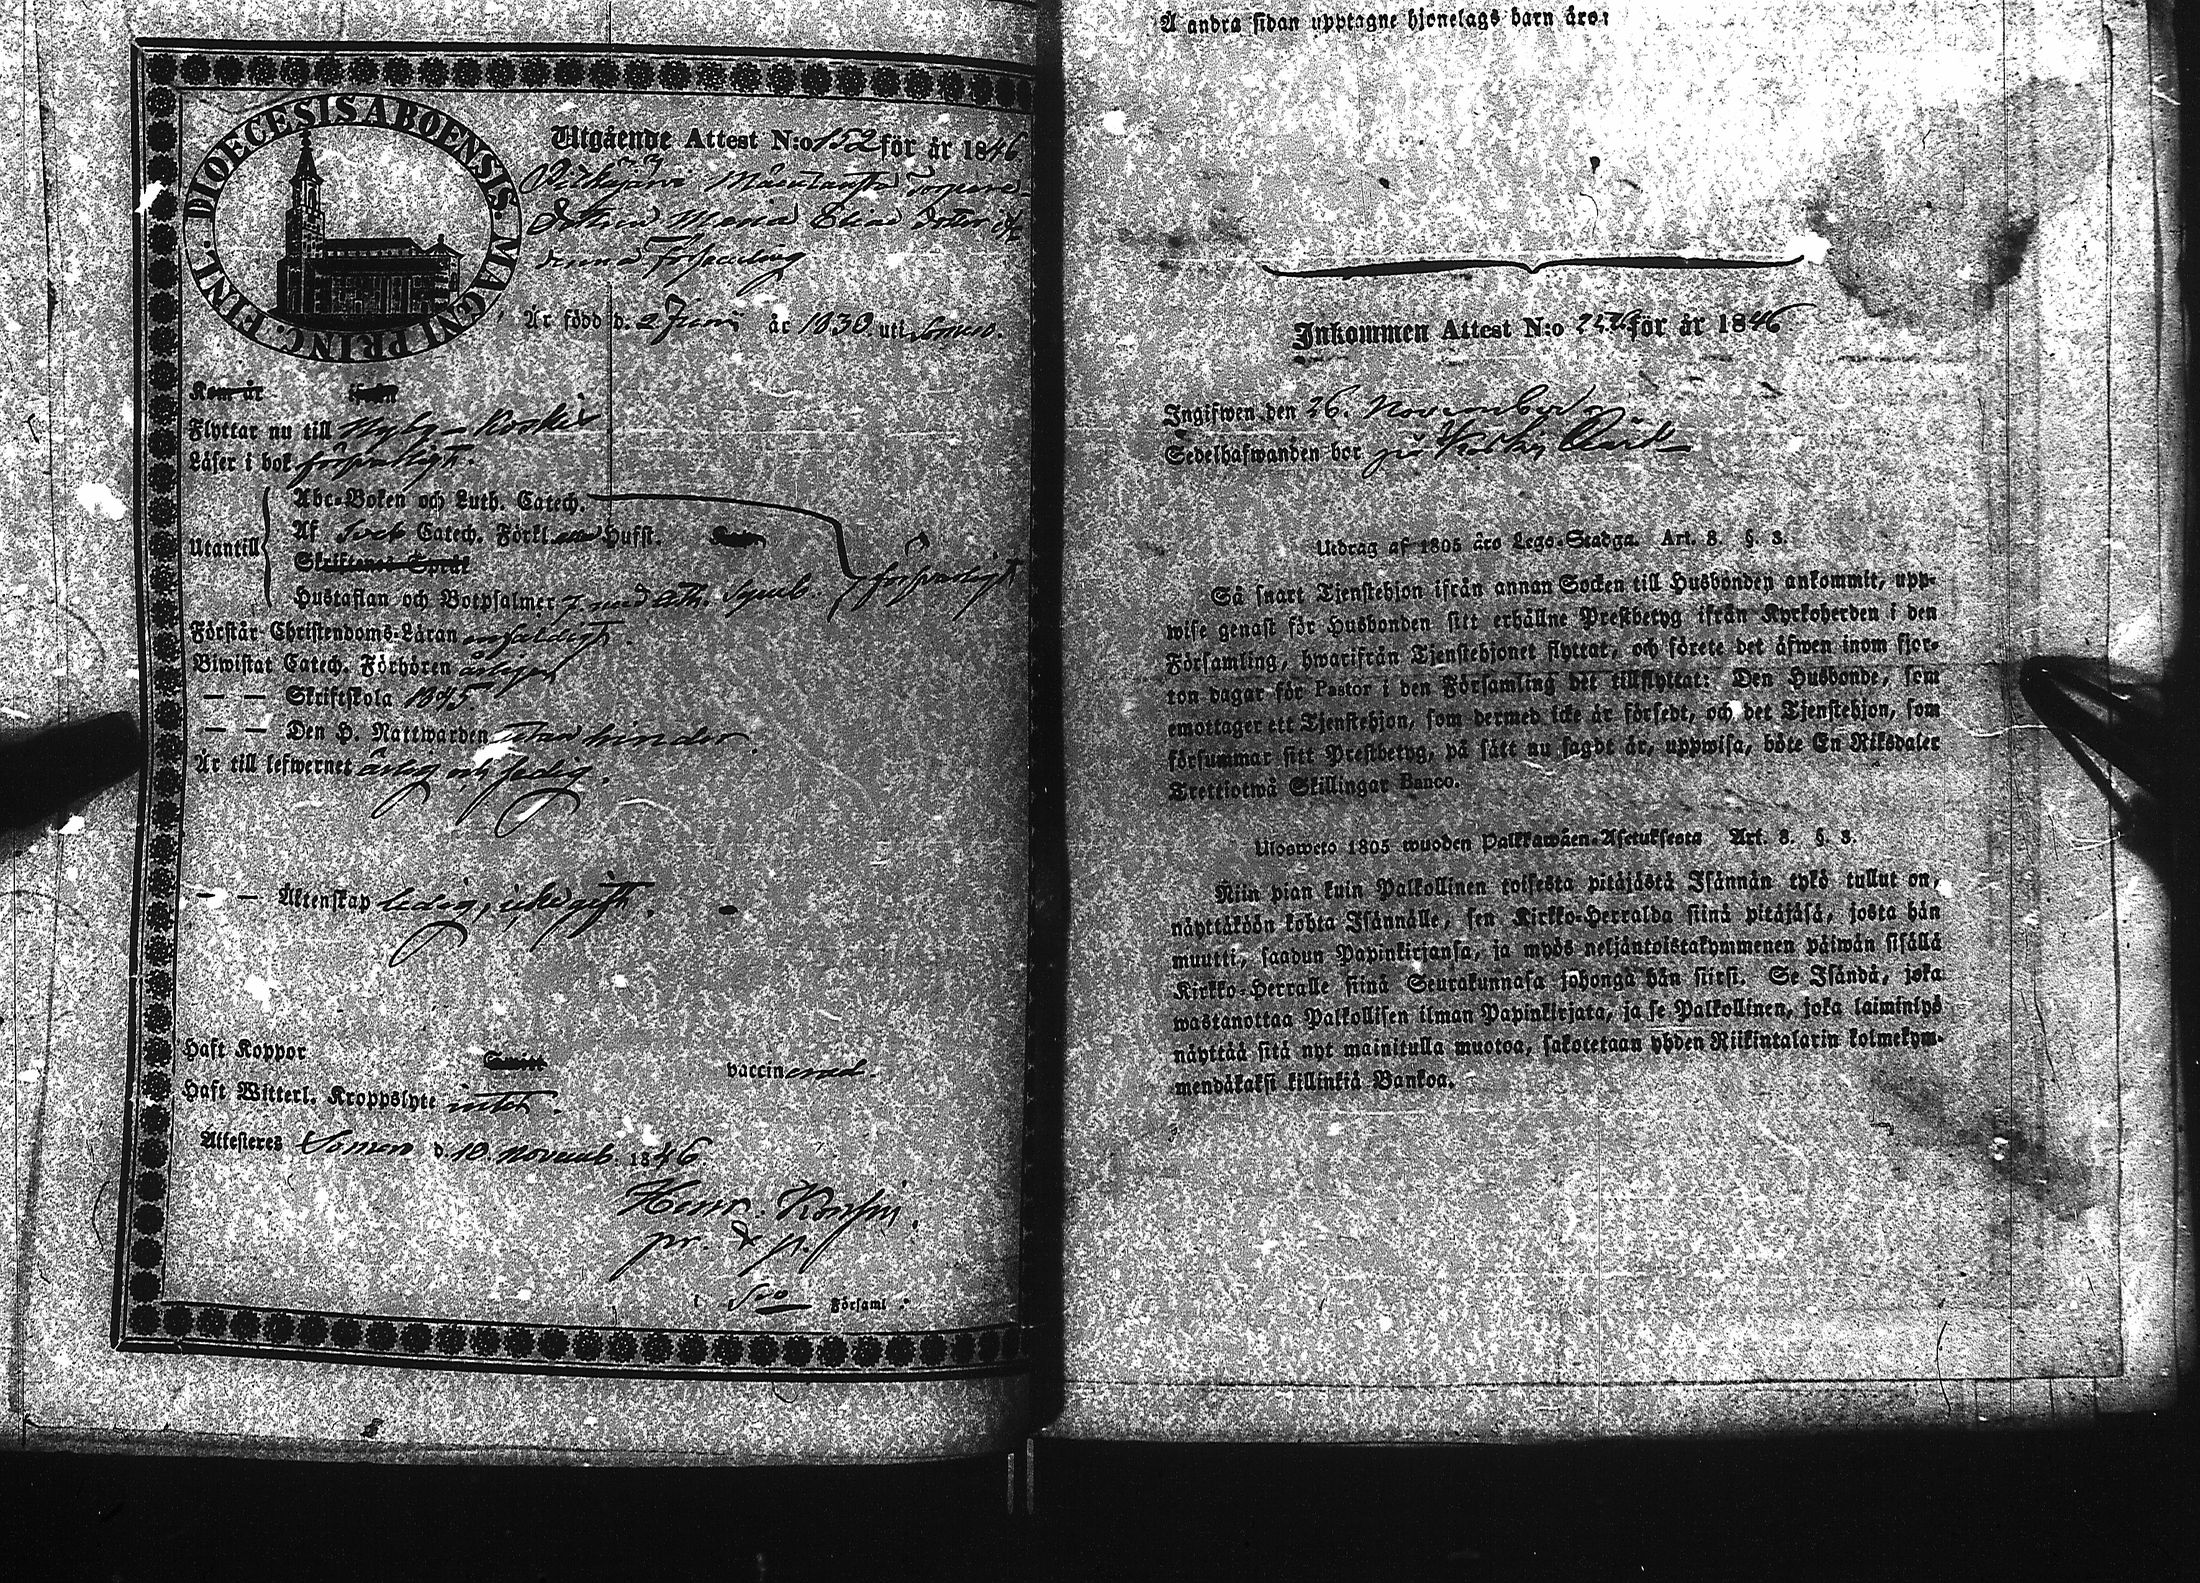 DIOECESIS ABOENSIS. MAGNI PRINC. FINL.
Utgående Attest N:o 152 för år 1846
Pitkäjärvi Måentausta
Dottren Maria Elias dotter
denna Församling
Är född d. 2 Junii år 1830 uti Somero.
Kom år
Flyttar nu till Nyby - Koskis
Läser i bok försvarligt.
Utantill
Abc-Boken och Luth. Catech.
Af Sveb Catech. Förkl. Husst.
Skriftenes Språk
försvarligt
Hustaflan och Botpsalmer 7. med Ath. Symb.
Förstår Christendoms-Läran enfaldigt.
Biwistat Catech. Förhören årligen
— — Skriftskola 1845.
— — Den H. Nattwarden utan hinder.
Är till lefwernet ärlig och sedig.
— — Äktenskap ledig, icke gift.
Haft Koppor vaccinerad.
Haft Witterl. Kroppslyte intet.
Attesteras Somero d. 10 Novemb. 1846.
Henr.
i Församl.
Å andra sidan upptagne hjonelags barn äro:
Inkommen Attest N:o för år 1846
Ingifwen den 26. November
Sedelhafwanden bor på
Utdrag af 1805 års Lego-Stadga. Art. 8. §. 3.
Så snart Tjenstehjon ifrån annan Socken till Husbonden ankommit, upp-
wise genast för Husbonden sitt erhållne Prestbetyg ifrån Kyrkoherden i den
Församling, hwarifrån Tjenstehjonet flyttat, och förete det äfwen inom fjor-
ton dagar för Pastor i den Församling det tillflyttat: Den Husbonde, som
emottager ett Tjenstehjon, som dermed icke är försedt, och det Tjenstehjon, som
försummar sitt Prestbetyg, på sätt nu sagdt är, uppwisa, böte En Riksdaler
Trettiotwå Skillingar Banco.
Ulosweto 1805 wuoden Palkkawäen-Asetuksesta Art. 8. §. 3.
Niin pian kuin Palkollinen toisesta pitäjästä Isännän tykö tullut on,
näyttäköön kohta Isännälle, sen Kirkko-Herralda siinä pitäjäsä, josta hän
muutti, saadun Papinkirjansa, ja myös neljäntoistakymmenen päiwän sisällä
Kirkko-Herralle siinä Seurakunnasa johonga hän siirsi. Se Isändä, joka
wastanottaa Palkollisen ilman Papinkirjata, ja se Palkollinen, joka laiminlyö
näyttää sitä nyt mainitulla muotoa, sakotetaan yhden Riikintalarin kolmekym-
mendäkaksi killinkiä Bankoa.